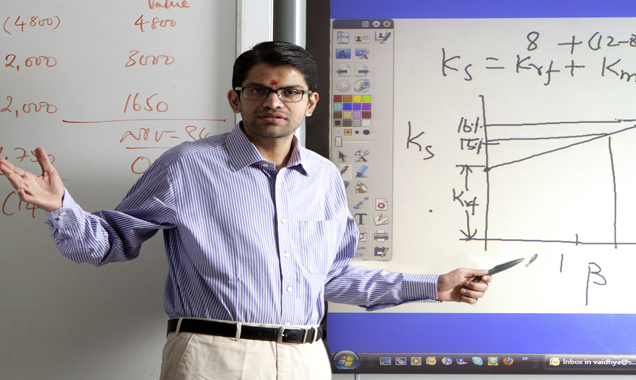 Value
(4800) 4800
2,000 3000
2,000 1650
NPV = 86
8 + (12-8
Ks = Krf + Km
Ks
16%
15%
Krf
1
β
T
Inbox in vaidhya@s...